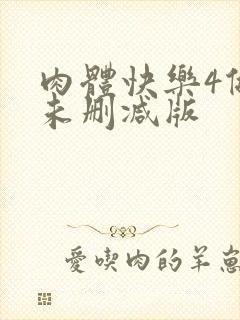 肉體快樂4
未删减版
愛喫肉的羊